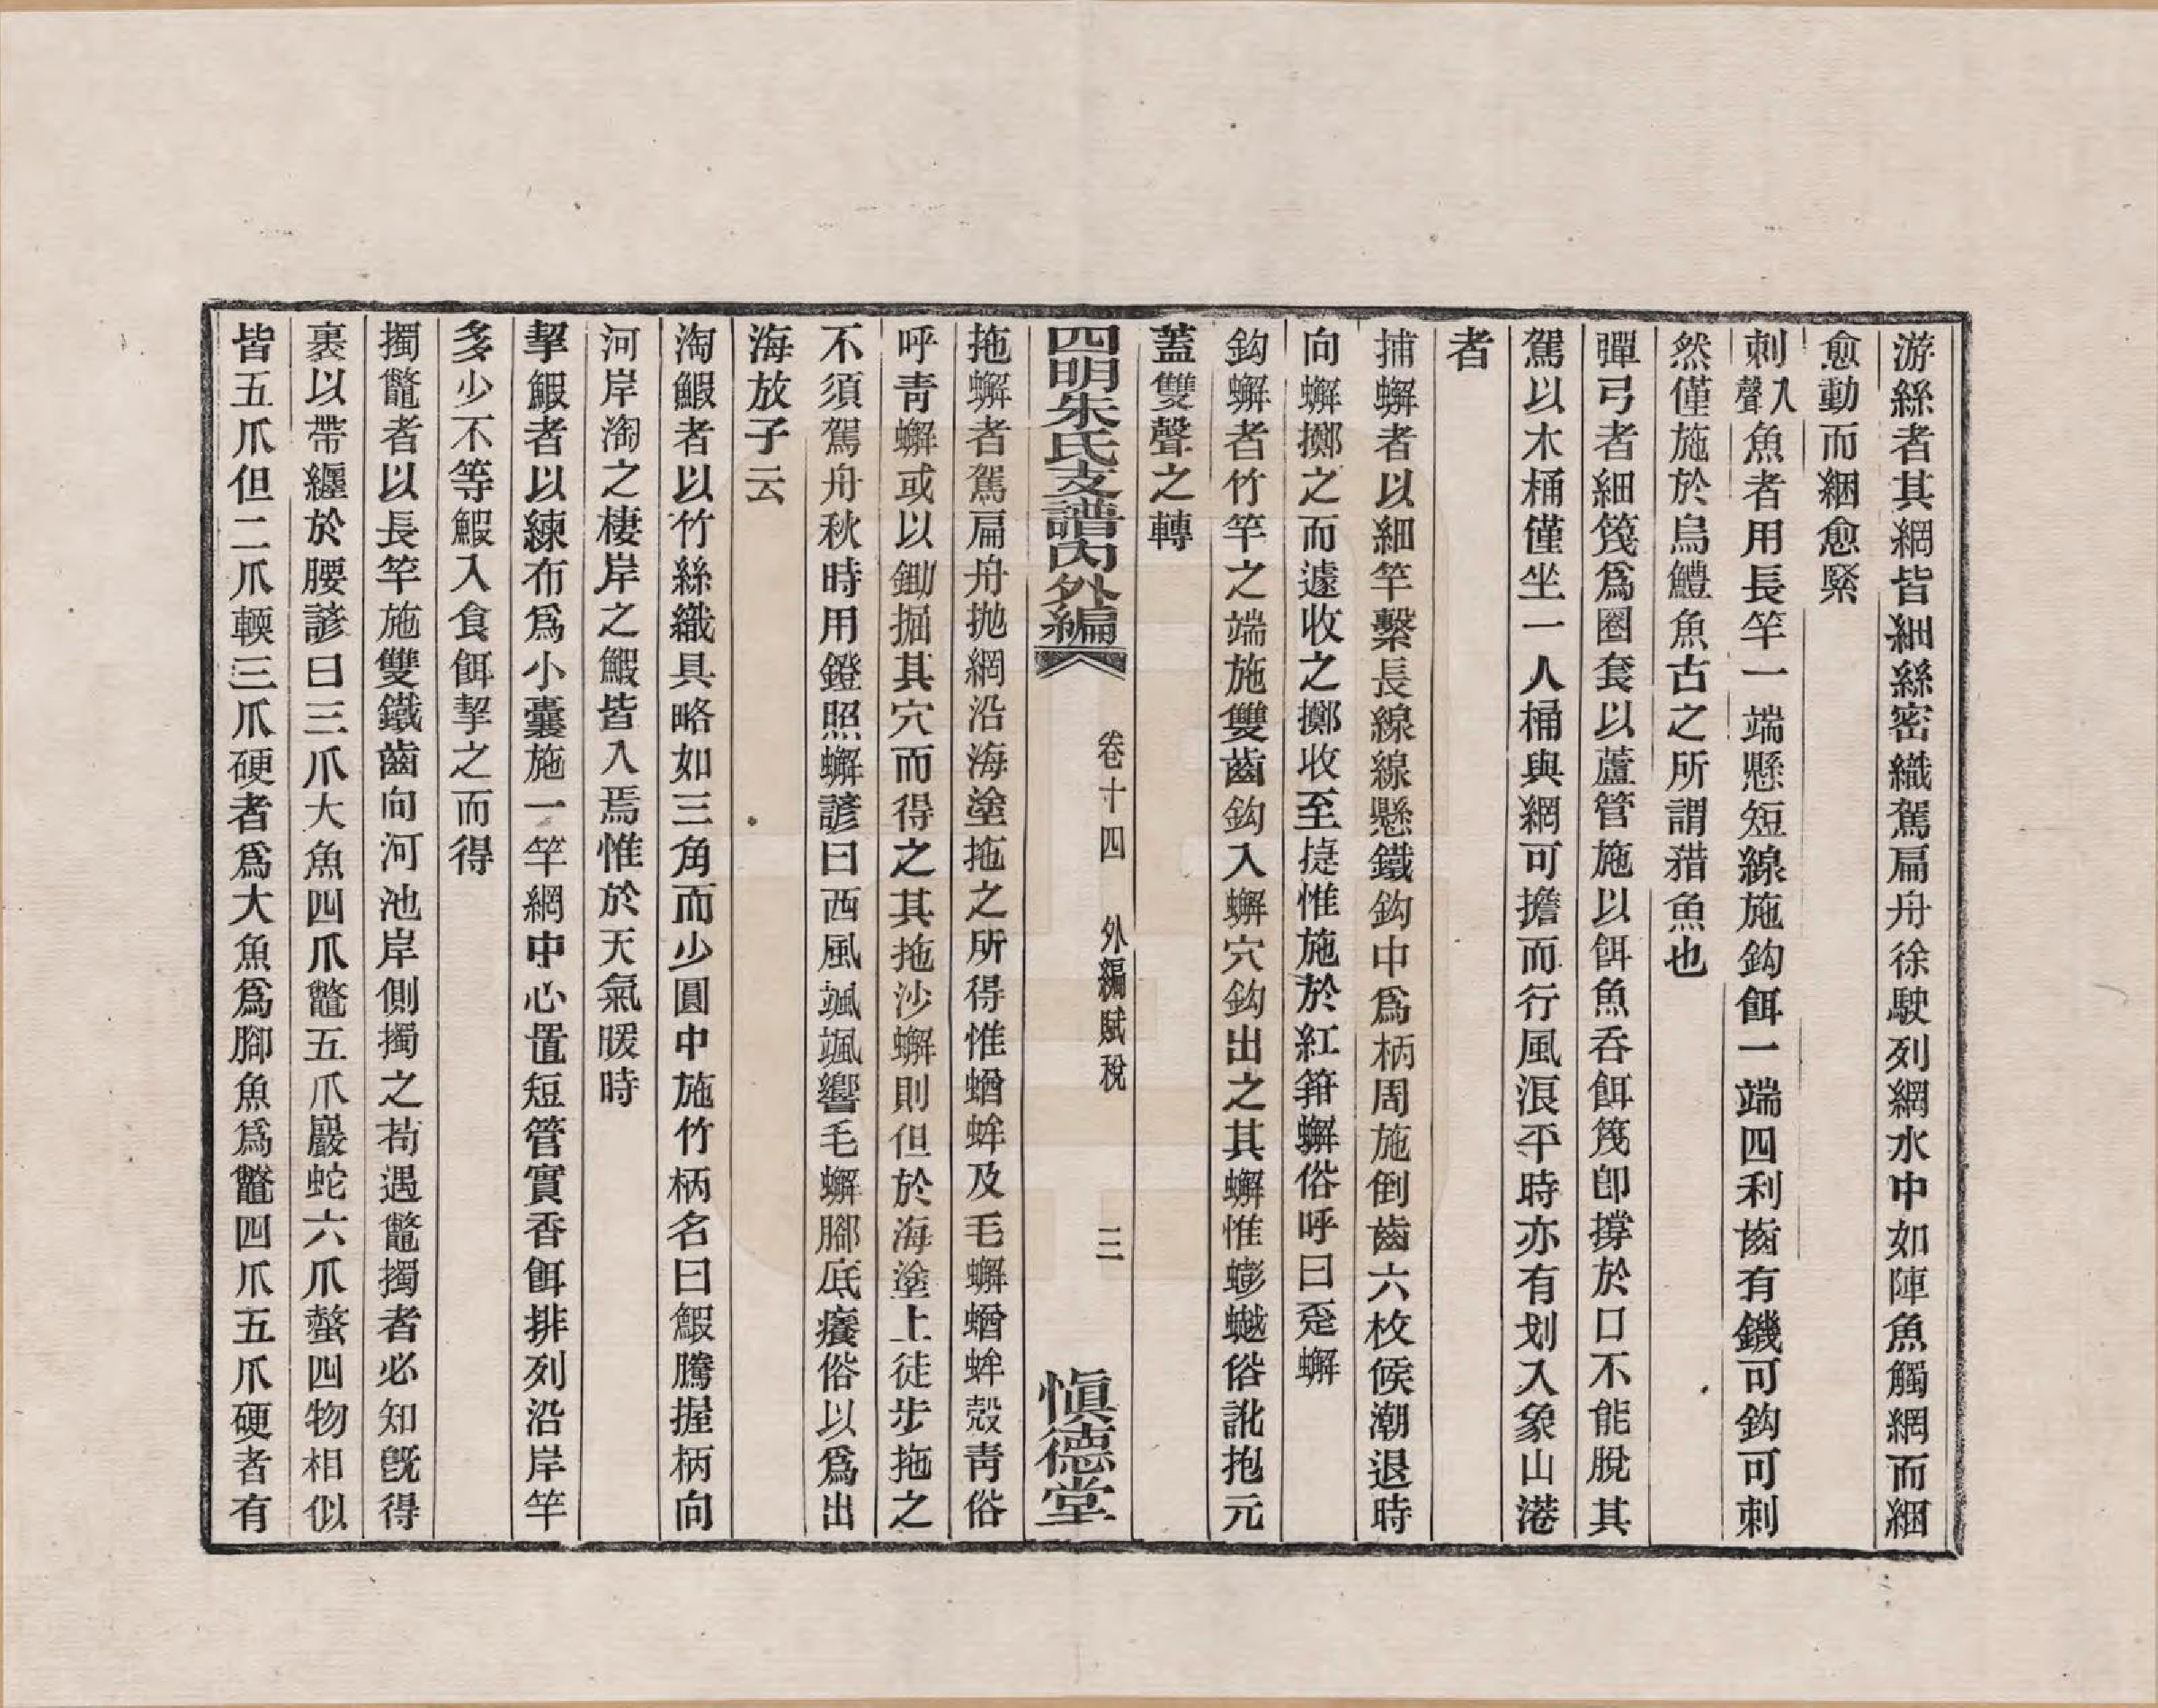 游絲者其網皆細絲密織駕扁舟徐駛列網水中如陣魚觸網而綑
愈動而綑愈緊
刺入聲魚者用長竿一端懸短線施鈎餌一端四利齒有鐖可鈎可刺
然僅施於烏鱧魚古之所謂矠魚也
彈弓者細篾爲圈套以蘆管施以餌魚吞餌篾卽撐於口不能脫其
駕以木桶僅坐一人桶與網可擔而行風浪平時亦有划入象山港
者
捕蠏者以細竿繫長線線懸鐵鈎中爲柄周施倒齒六枚候潮退時
向蠏擲之而遽收之擲收至捷惟施於紅箝蠏俗呼曰踅蠏
鈎蠏者竹竿之端施雙齒鈎入蠏穴鈎出之其蠏惟蟛蟚俗訛抱元
蓋雙聲之轉
四明朱氏支譜內外編 卷十四 外編賦稅 三 愼德堂
拖蠏者駕扁舟拋網沿海塗拖之所得惟蝤蛑及毛蠏蝤蛑殼靑俗
呼靑蠏或以鋤掘其穴而得之其拖沙蠏則但於海塗上徒步拖之
不須駕舟秋時用鐙照蠏諺曰西風颯颯響毛蠏腳底癢俗以爲出
海放子云
淘鰕者以竹絲織具略如三角而少圓中施竹柄名曰鰕騰握柄向
河岸淘之棲岸之鰕皆入焉惟於天氣暖時
挈鰕者以練布爲小囊施一竿網中心置短管實香餌排列沿岸竿
多少不等鰕入食餌挈之而得
擉鼈者以長竿施雙鐵齒向河池岸側擉之苟遇鼈擉者必知旣得
裹以帶纏於腰諺曰三爪大魚四爪鼈五爪巖蛇六爪螯四物相似
皆五爪但二爪輭三爪硬者爲大魚爲腳魚爲鼈四爪五爪硬者有